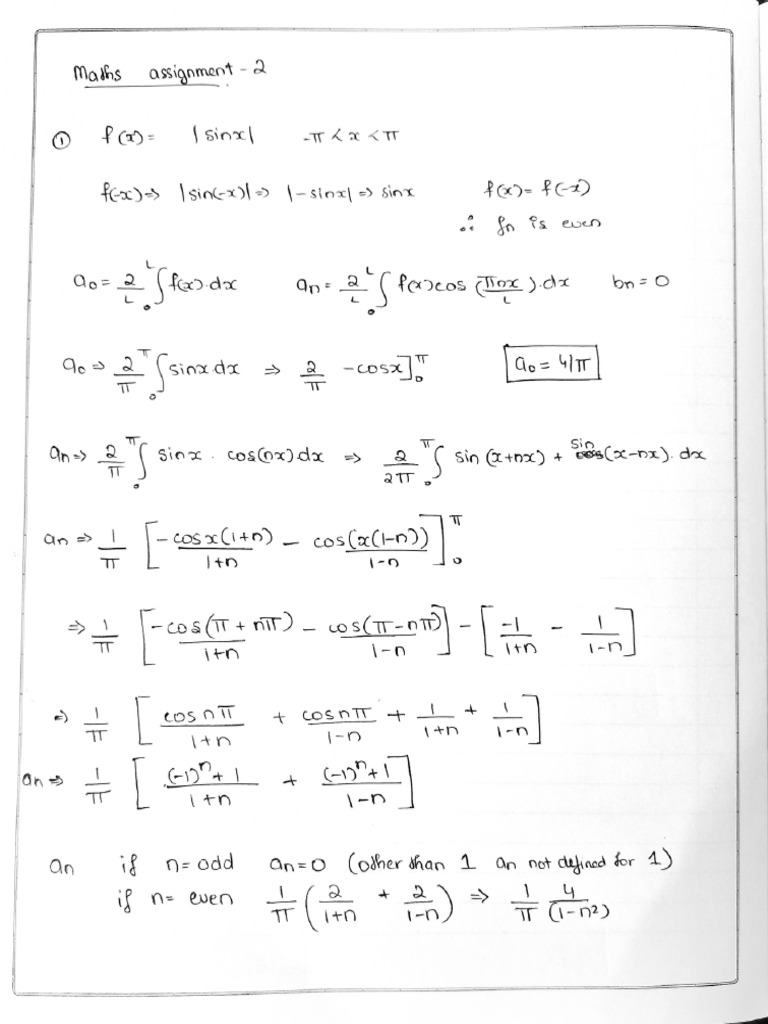 Maths assignment - 2
① f(x) = |sinx| -π < x < π
f(-x) ⇒ |sin(-x)| ⇒ |-sinx| ⇒ sinx f(x) = f(-x)
∴ fn is even
a₀ = 2/L ∫₀ᴸ f(x).dx an = 2/L ∫₀ᴸ f(x)cos(πnx/L).dx bn = 0
a₀ ⇒ 2/π ∫₀^π sinx dx ⇒ 2/π -cosx]₀^π a₀ = 4/π
an ⇒ 2/π ∫₀^π sinx . cos(nx).dx ⇒ 2/2π ∫₀^π sin(x+nx) + sin(x-nx).dx
an ⇒ 1/π [-cosx(1+n)/1+n - cos(x(1-n))/1-n]₀^π
⇒ 1/π [-cos(π+nπ)/1+n - cos(π-nπ)/1-n] - [-1/1+n - 1/1-n]
⇒ 1/π [cosnπ/1+n + cosnπ/1-n + 1/1+n + 1/1-n]
an ⇒ 1/π [(-1)ⁿ+1/1+n + (-1)ⁿ+1/1-n]
an if n=odd an=0 (other than 1 an not defined for 1)
if n= even 1/π (2/1+n + 2/1-n) ⇒ 1/π 4/(1-n²)